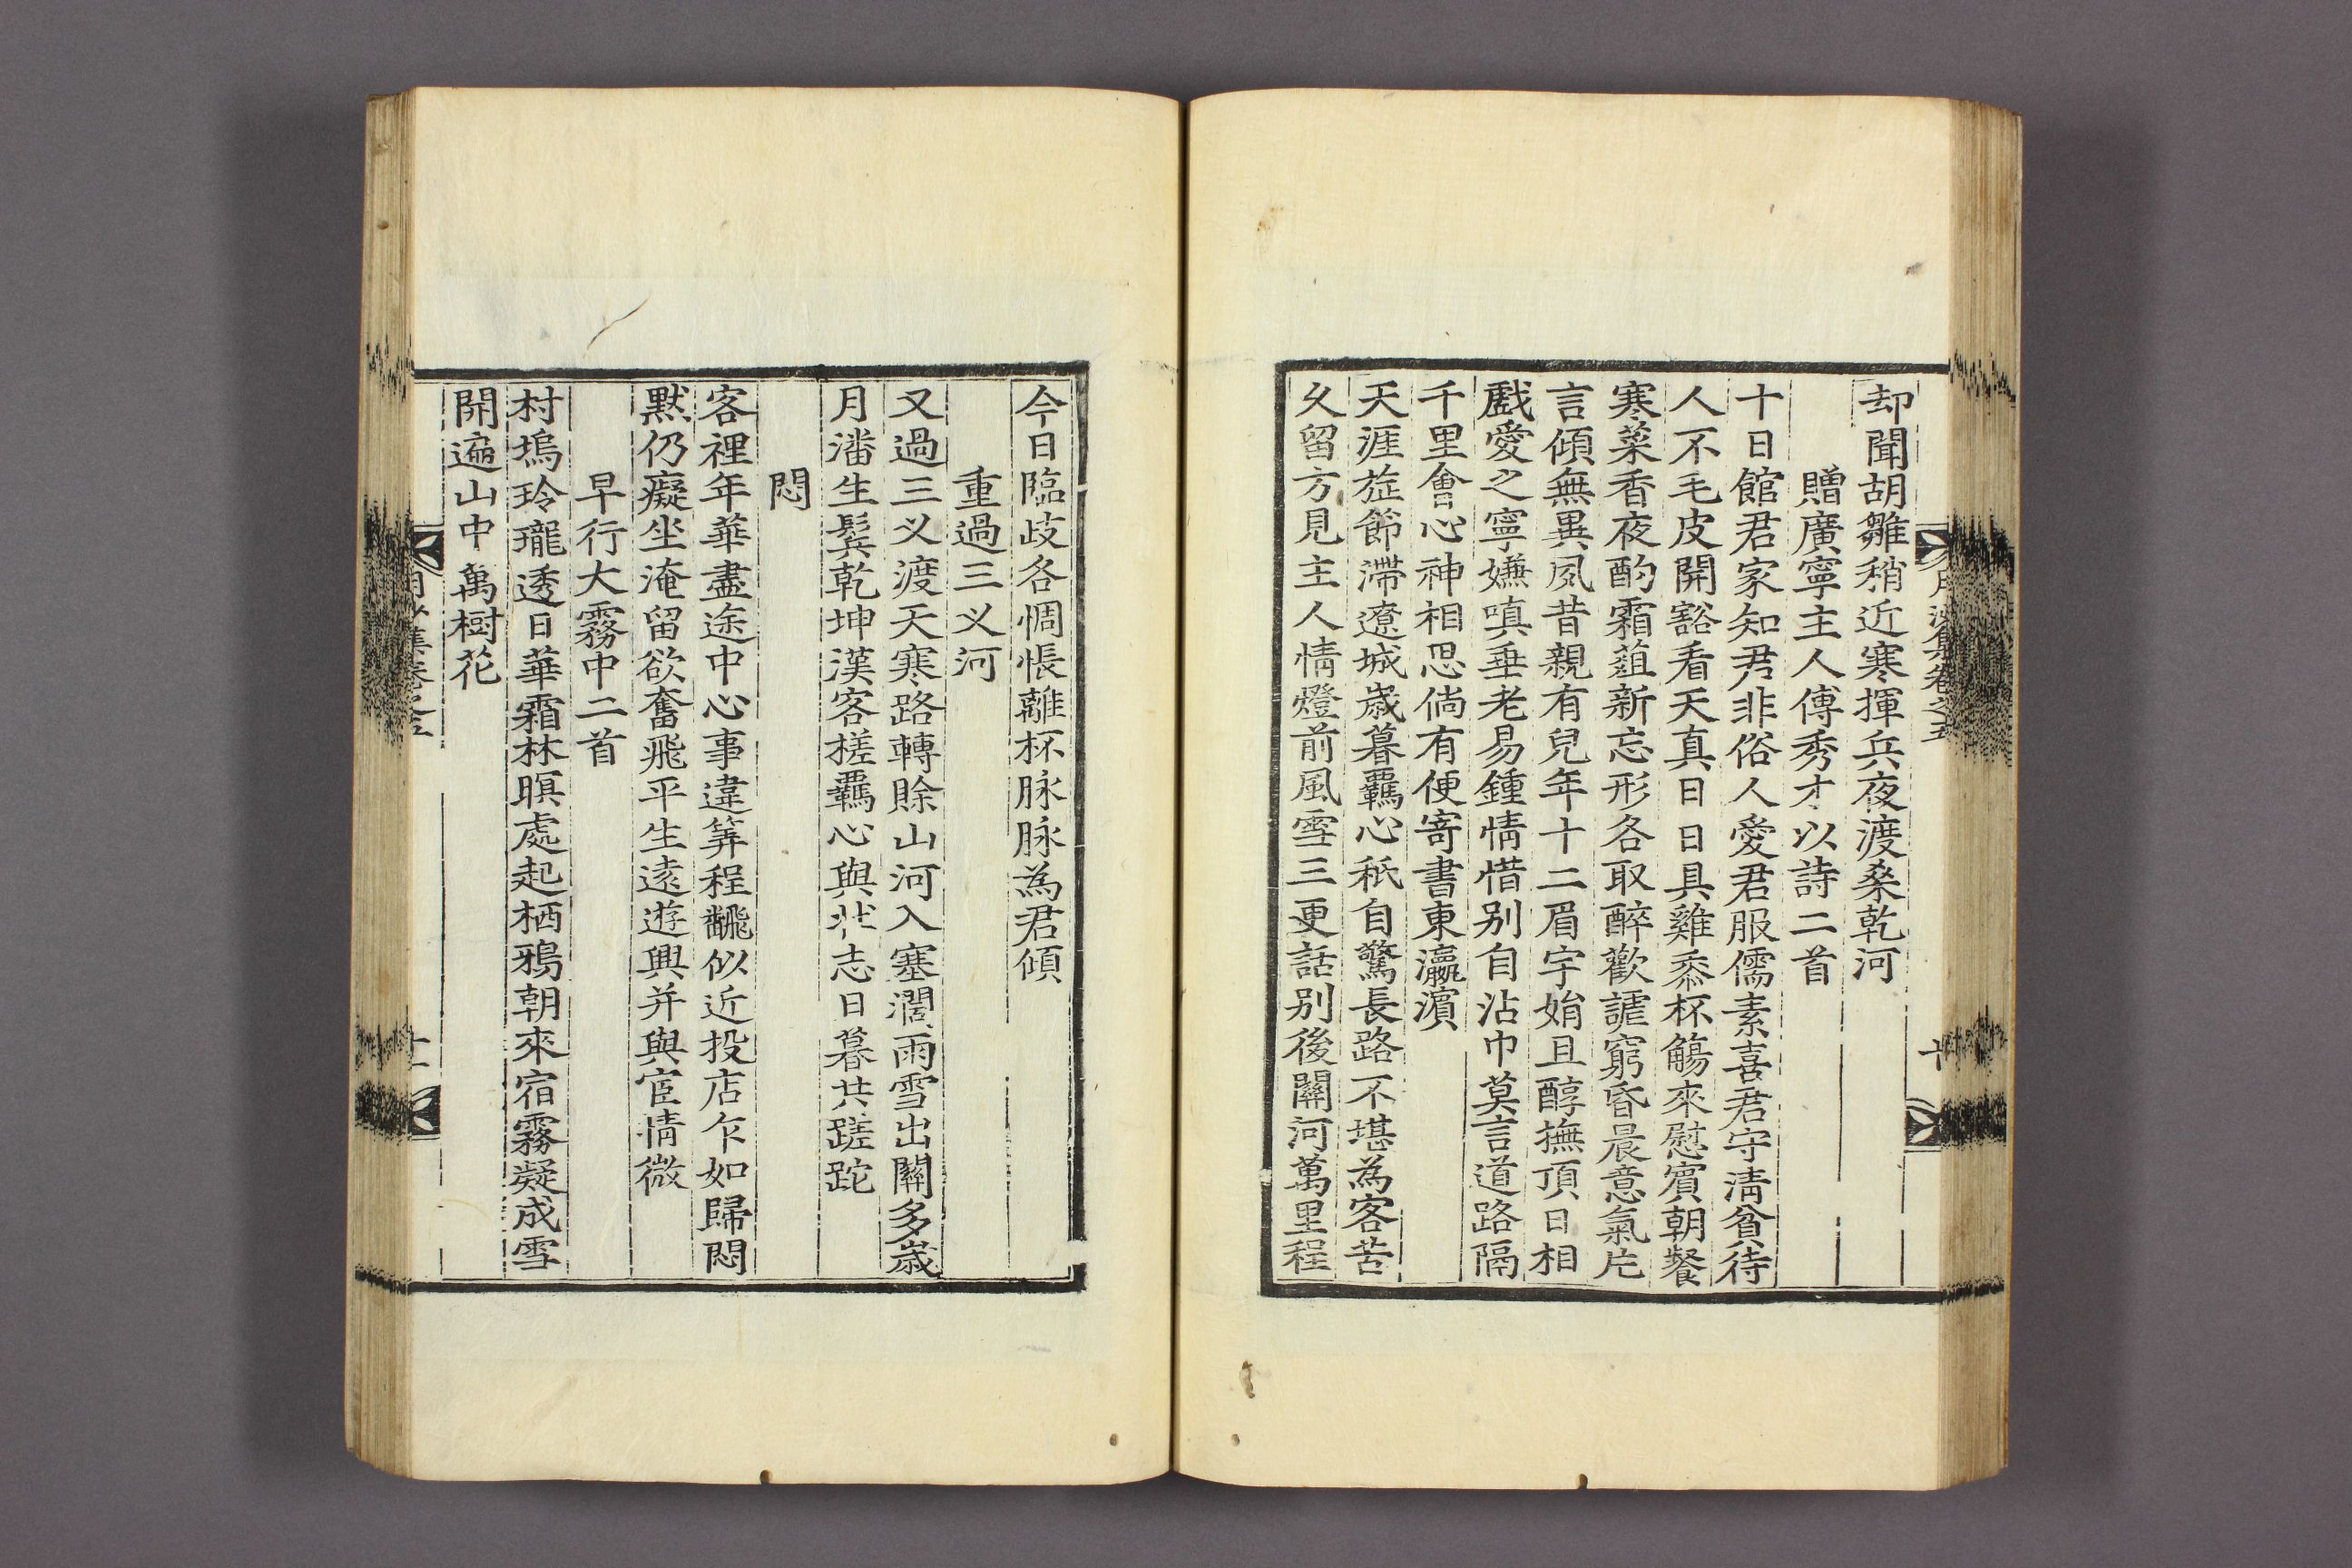 却聞胡雛稍近寒揮兵夜渡桑乾河
贈廣寧主人傅秀才以詩二首
十日館君家知君非俗人愛君服儒素喜君守淸貧待
人不毛皮開豁看天真日日具雞黍杯觴來慰賓朝餐
寒菜香夜酌霜葅新忘形各取醉歡謔窮昏晨意氣片
言傾無異夙昔親有兒年十二眉宇娟且醇撫頂日相
戲愛之寧嫌嗔垂老易鍾情惜别自沾巾莫言道路隔
千里會心神相思倘有便寄書東瀛濱
天涯旌節滯遼城歲暮羈心秖自驚長路不堪為客苦
久留方見主人情燈前風雪三更話别後關河萬里程
卷之五
十
今日臨歧各惆悵離杯脉脉為君傾
重過三义河
又過三义渡天寒路轉賖山河入塞濶雨雪出關多歲
月潘生鬂乾坤漢客槎羈心與壯志日暮共蹉跎
悶
客裡年華盡途中心事違筭程飜似近投店乍如歸悶
默仍癡坐淹留欲奮飛平生遠遊興并與宦情微
早行大霧中二首
村塢玲瓏透日華霜林暝處起栖鴉朝來宿霧凝成雪
開遍山中萬樹花